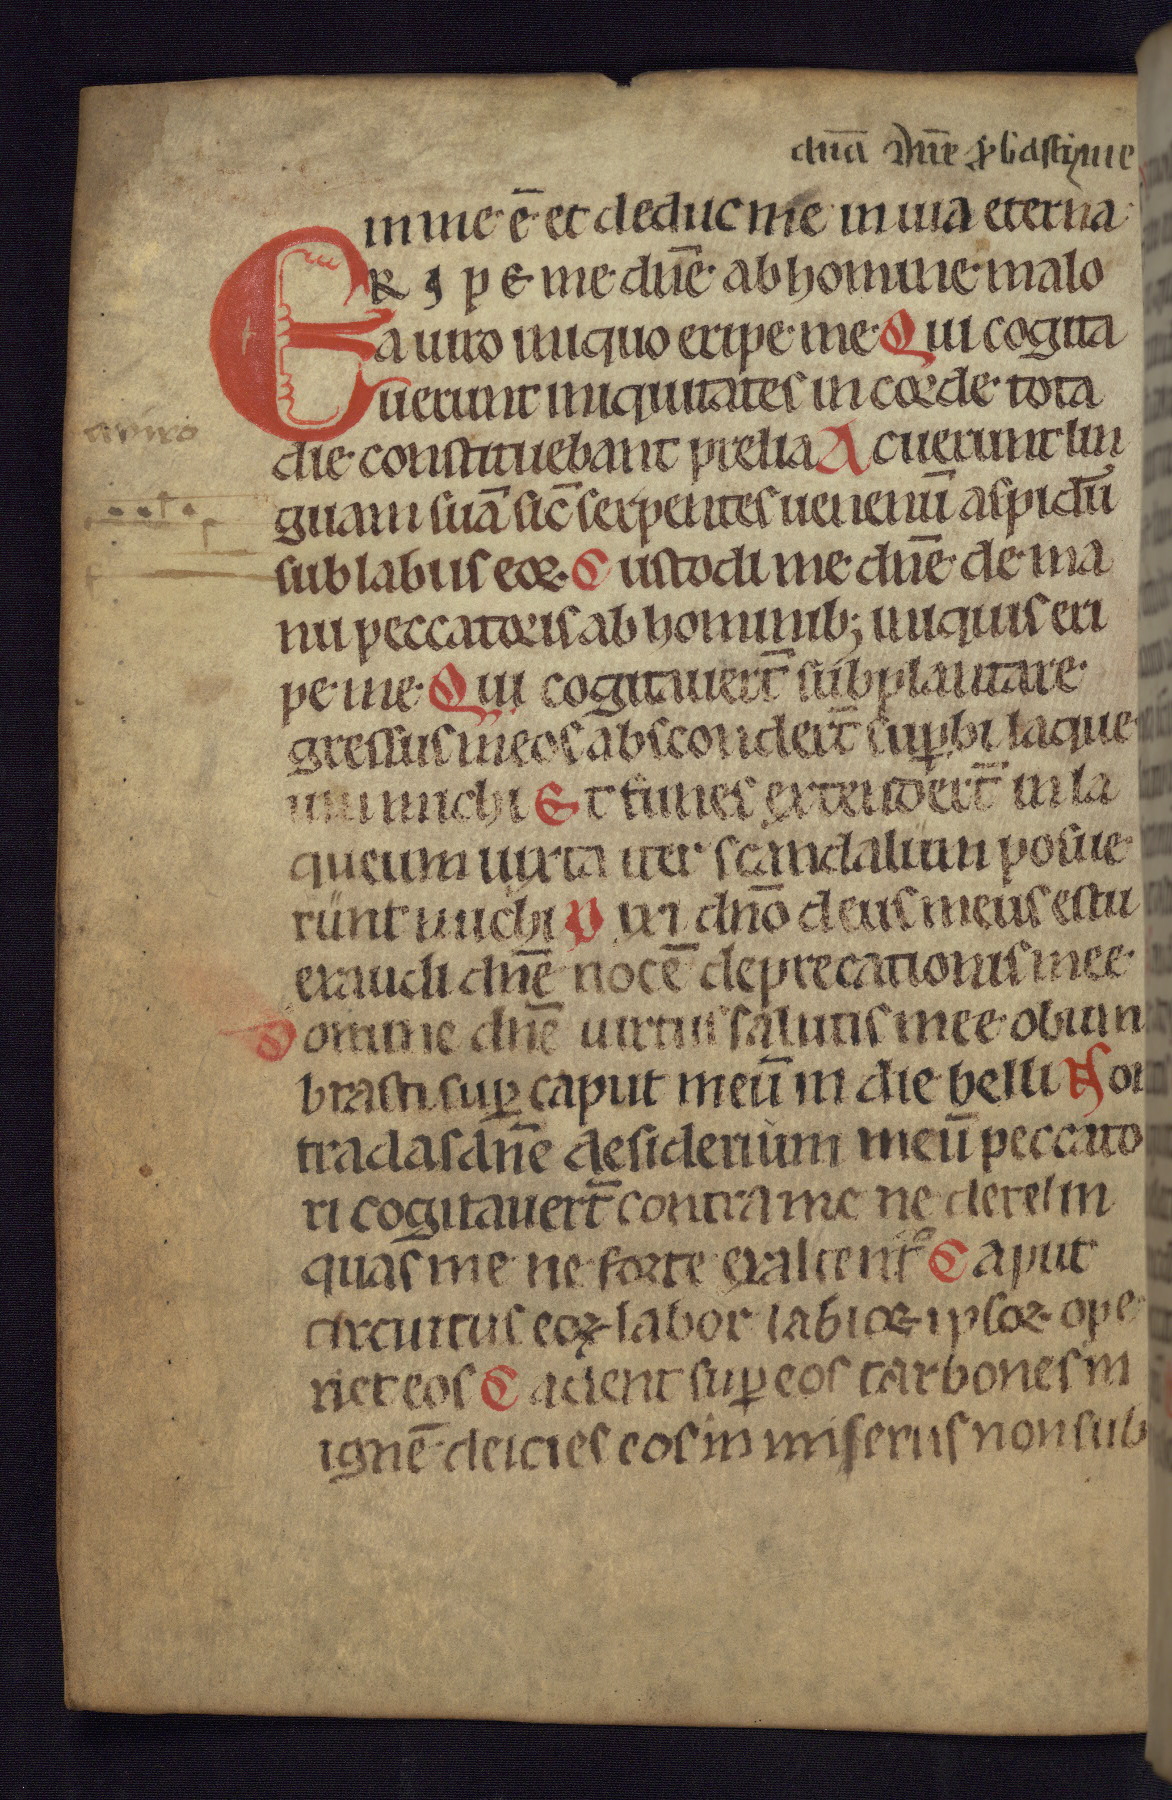 an̄a Dn̄e ꝓbasti me
in me ē et deduc me in uia eterna
ERIPE me dn̄e ab homine malo
a uiro iniquo eripe me Qui cogita
uerunt iniquitates in corde tota
die constituebant prelia Acuerunt lin
a viro
guam suā sic̄ serpentes uenenū aspidū
sub labiis eoꝝ Custodi me dn̄e de ma
nu peccatoris ab hominib; iniquis eri
pe me Qui cogitauert̄ subplantare
gressus meos abscondert̄ suꝑbi laque
um michi Et funes extendert̄ in la
queum iuxta iter scandalum posue
runt michi Dixi dn̄o deus meus es tu
exaudi dn̄e uocē deprecationis mee
Domine dn̄e uirtus salutis mee obum
brasti suꝑ caput meū in die belli Non
tradas dn̄e desiderium meū peccato
ri cogitauert̄ contra me ne derelin
quas me ne forte exaltent᷑ Caput
circuitus eoꝝ labor labioꝝ ipsoꝝ ope
riet eos Cadent suꝑ eos carbones in
ignē deicies eos in miseriis non sub